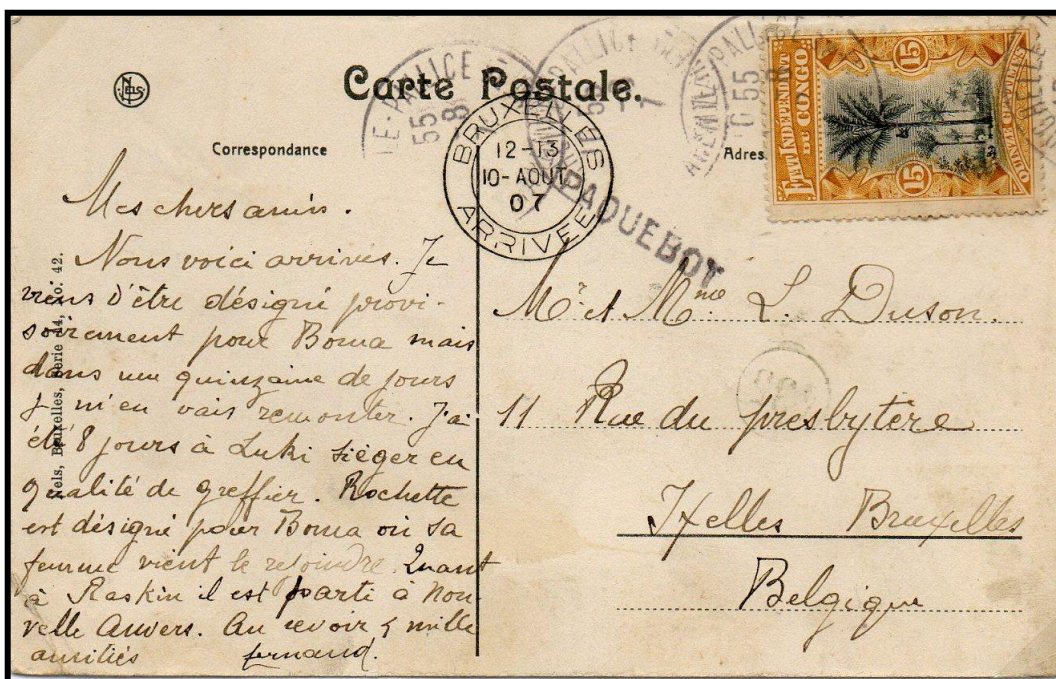 Carte Postale.
Correspondance
Adres
Nels, Bruxelles, Serie 14, No. 42.
LE-PALLICE
PALLICE
BRUXELLES
12-13
10-AOUT
07
ARRIVÉE
PAQUEBOT
ETAT INDÉPENDANT
DU CONGO
15
15
Mes chers amis.
Nous voici arrivés. Je
viens d'être désigné provi-
soirement pour Boma mais
dans une quinzaine de jours
je m'en vais remonter. J'ai
été 8 jours à Luki siéger en
qualité de greffier. Rochette
est désigné pour Boma où sa
femme vient le rejoindre. Quant
à Raskin il est parti à Nou-
velle Anvers. Au revoir & mille
amitiés fernand.
Mr et Mme L. Duson.
11 Rue du presbytère
Ixelles Bruxelles
Belgique